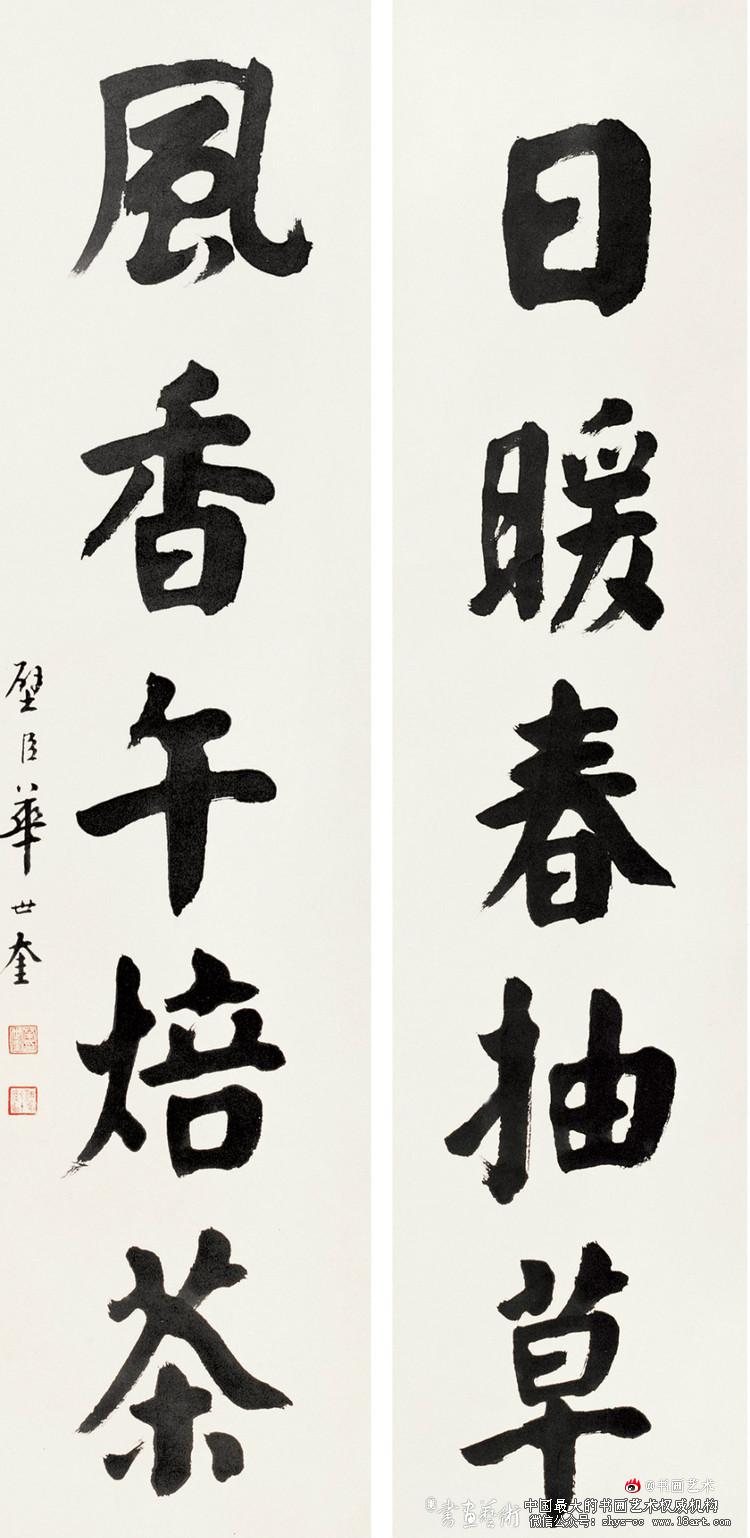 日暖春抽草
風香午焙茶
壁臣華世奎
@书画艺术
書画藝術
中国最大的书画艺术权威机构
微信公众号: shys-cc www.18art.com